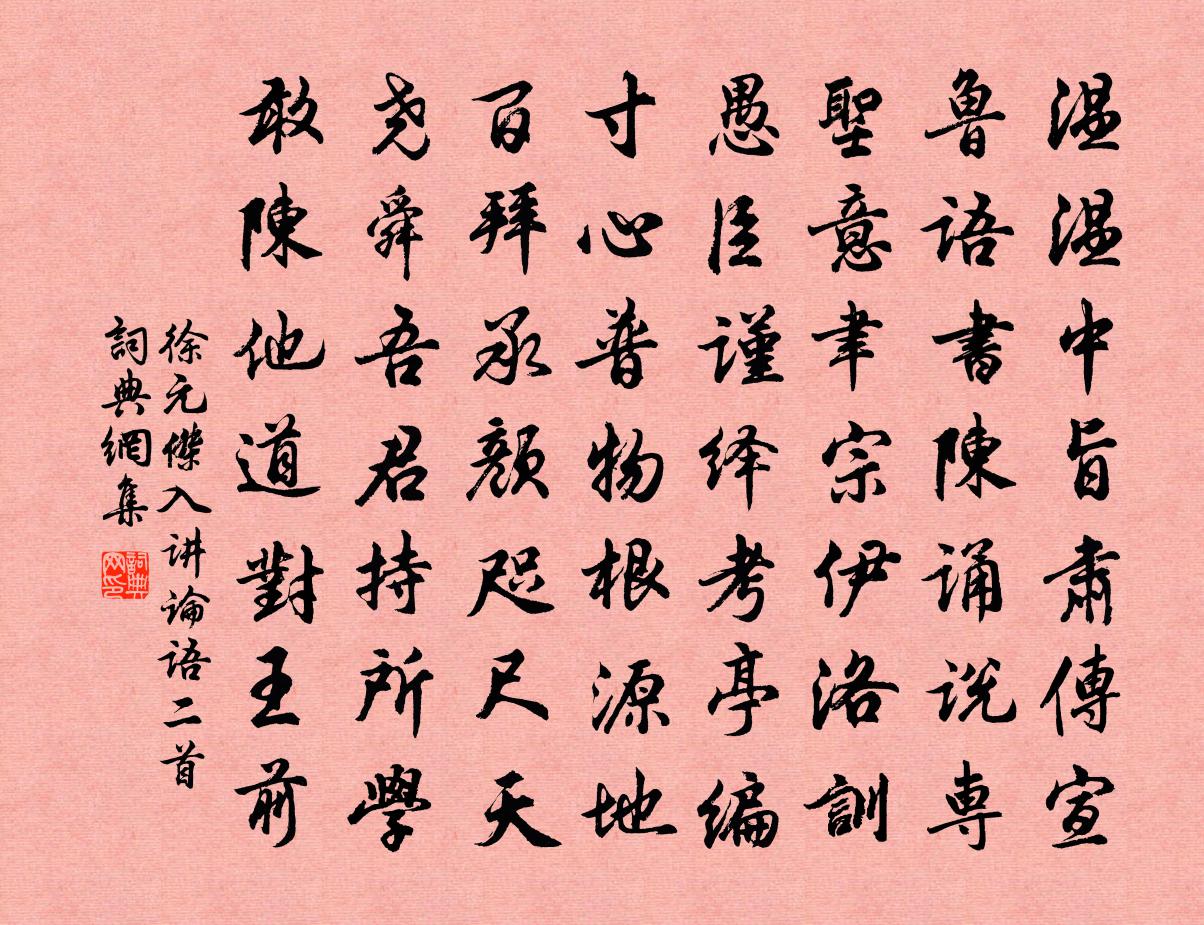 温温中旨肅傳宣
魯語書陳誦说専
聖意聿宗伊洛訓
愚臣谨绎考亭编
寸心普物根源地
百拜承颜咫尺天
尧舜吾君持所學
敢陳他道對王前
徐元傑入讲論语二首
詞典網集
詞典网印